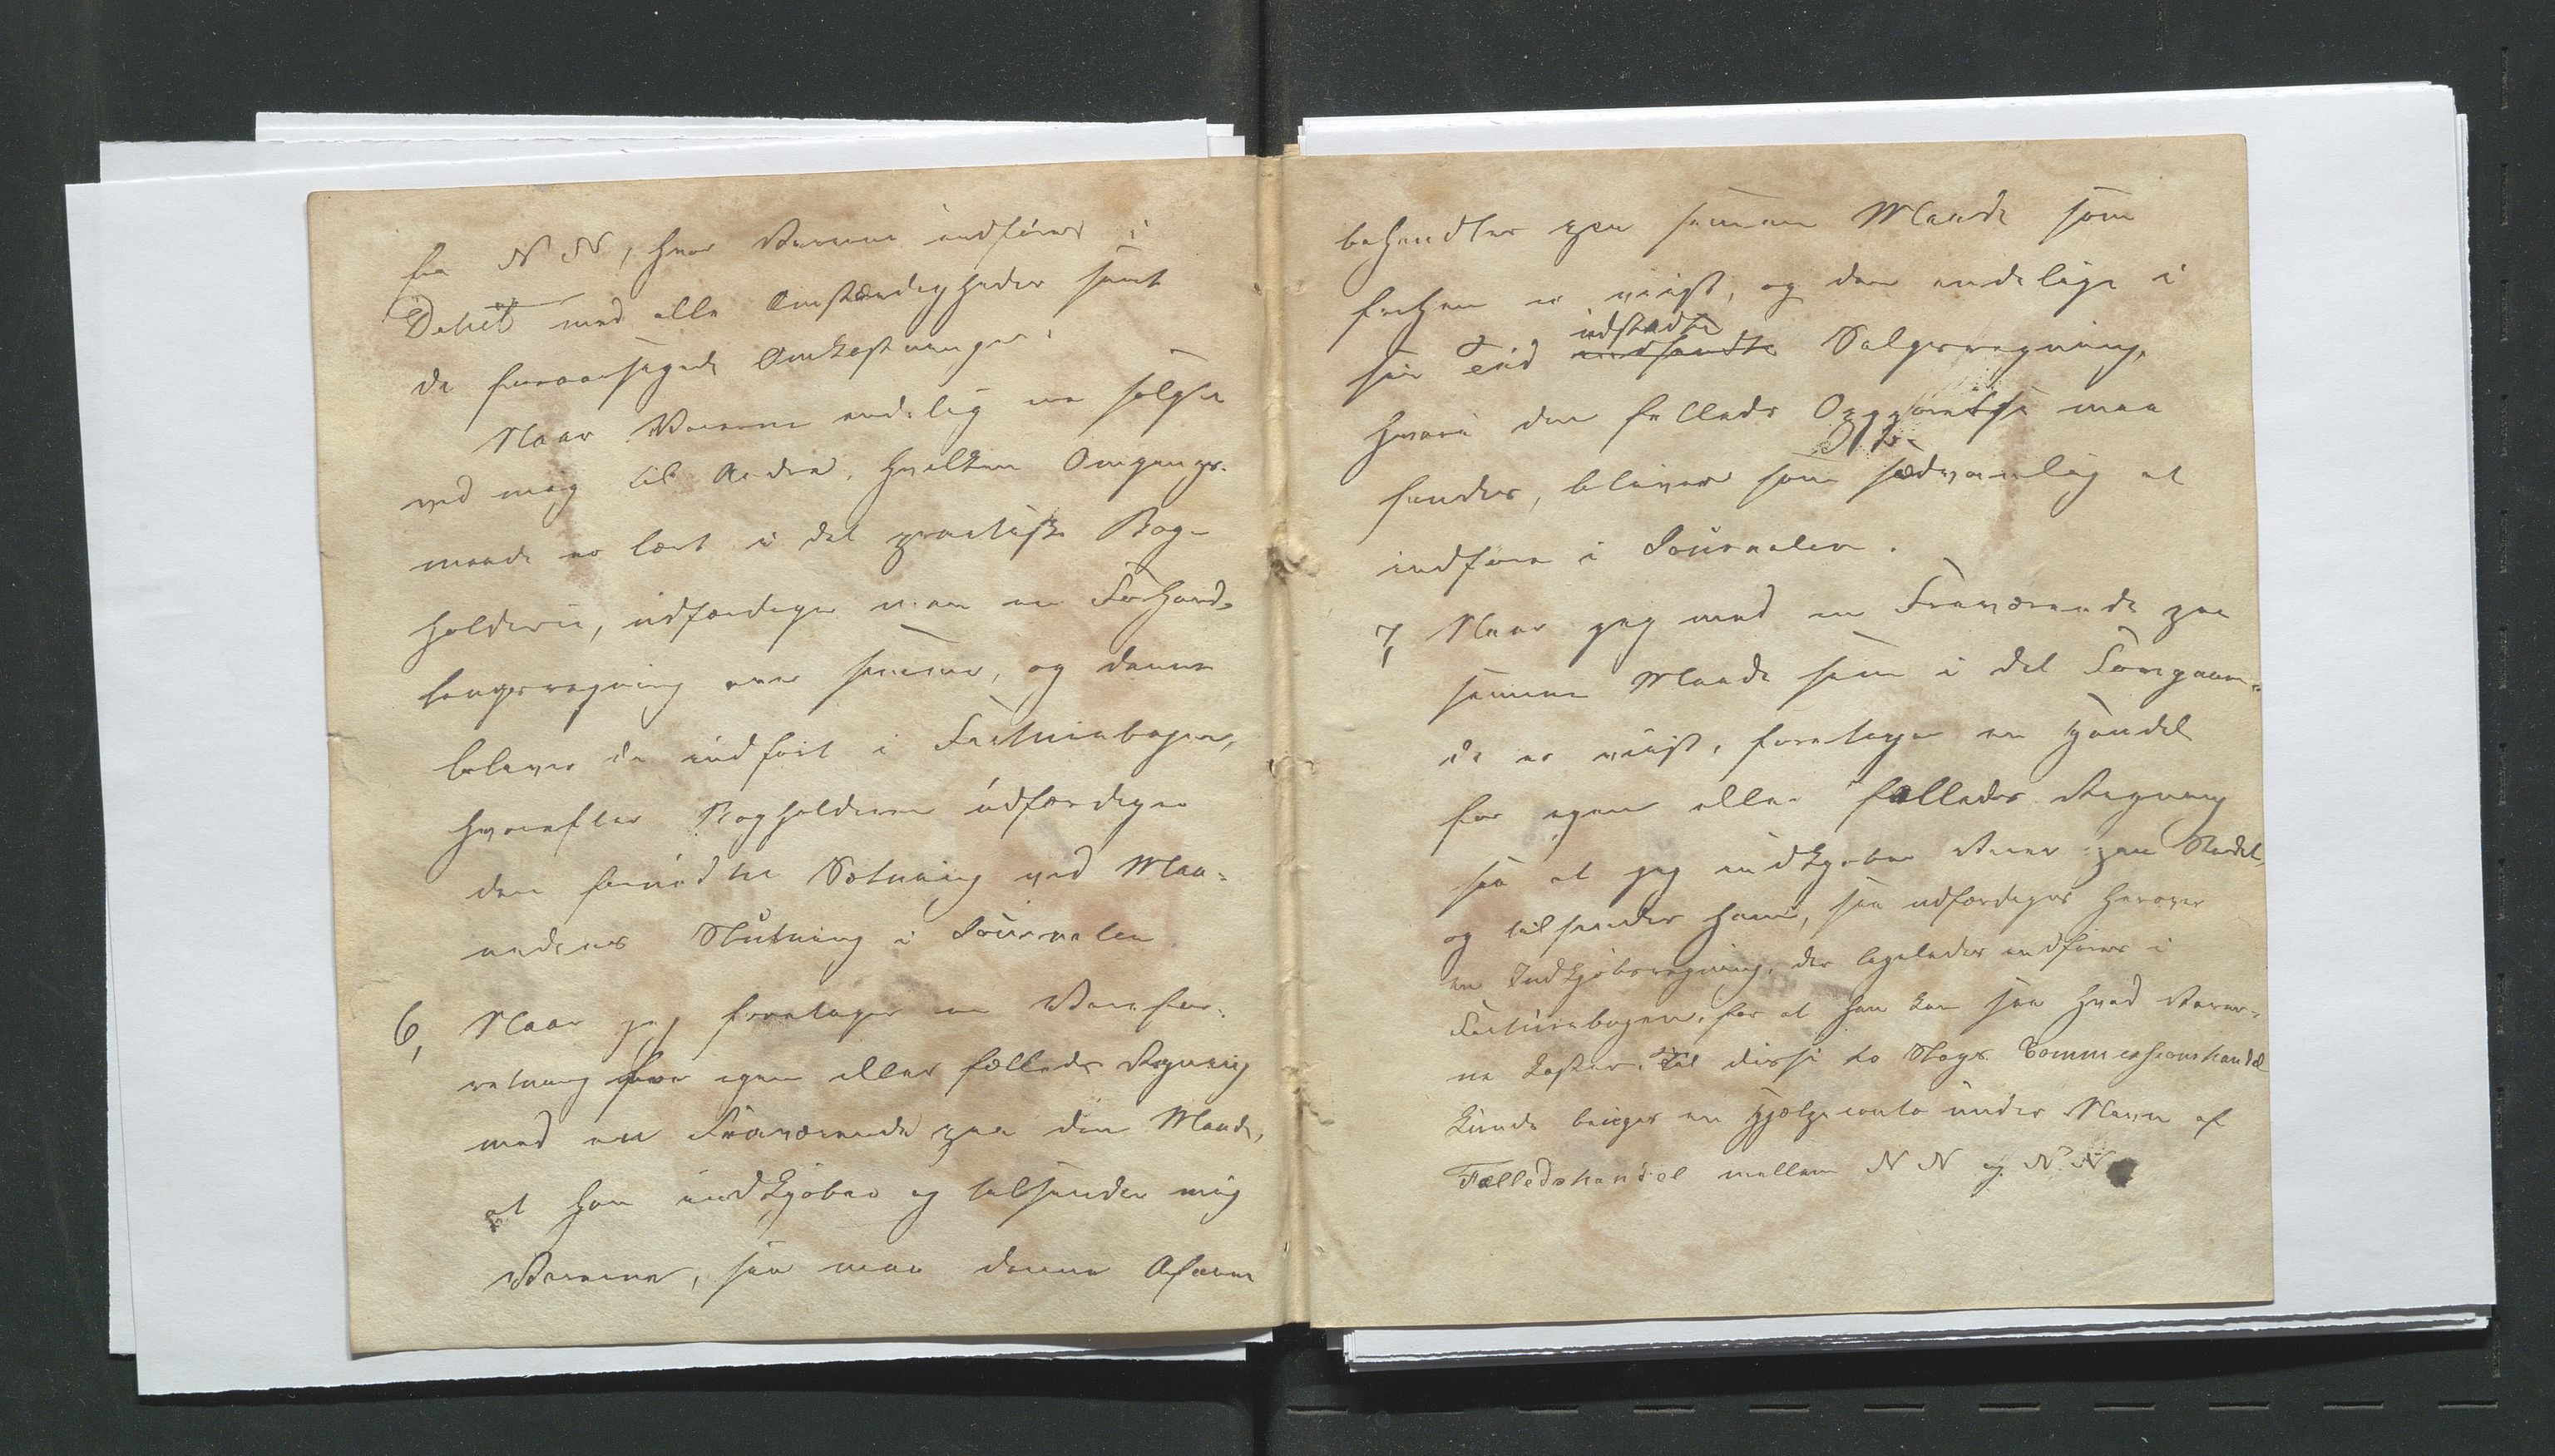 fra N N, hvor Varerne indføres i
Debet med alle Omstændigheder samt
de foraarsagede Omkostninger.
Naar Varerne endelig ere solgte
ved mig til Andre, hvilken Omgangs-
maade er lært i det practiske Bog-
holderie, udfærdiger man en Forhand-
lingsregning over samme, og denne
bliver da indført i Facturabogen,
hvorefter Bogholderen udfærdiger
den fornødne Sætning ved Maa-
nedens Slutning i Journalen
6, Naar jeg foretager en Varefor-
retning for egen eller fælleds Regning
med en Fraværende paa den Maade,
at han indkjøber og tilsender mig
Varerne, saa maa denne Affaire
behandles paa samme Maade som
forhen er viist, og den endelige i
sin Tid indstedte indsendte Salgsregning,
hvori den fælleds Opgjørelse maa
findes, bliver som sædvanlig at
indføre i Journalen.
7, Naar jeg med en Fraværende paa
samme Maade som i det Foregaaen-
de er viist, foretager en Handel
for egen eller fælleds Regning
saa at jeg indkjøber Varer paa Stedet
og tilsender ham, saa udfærdiges herover
en Indkjøbsregning, der ligeledes indføres i
Facturabogen, for at han kan see hvad Varer-
ne koster. Til disse to Slags Commissionshandel
kunde bruges en Hjælpeconto under Navn af
Fælledshandel mellem N N og N N